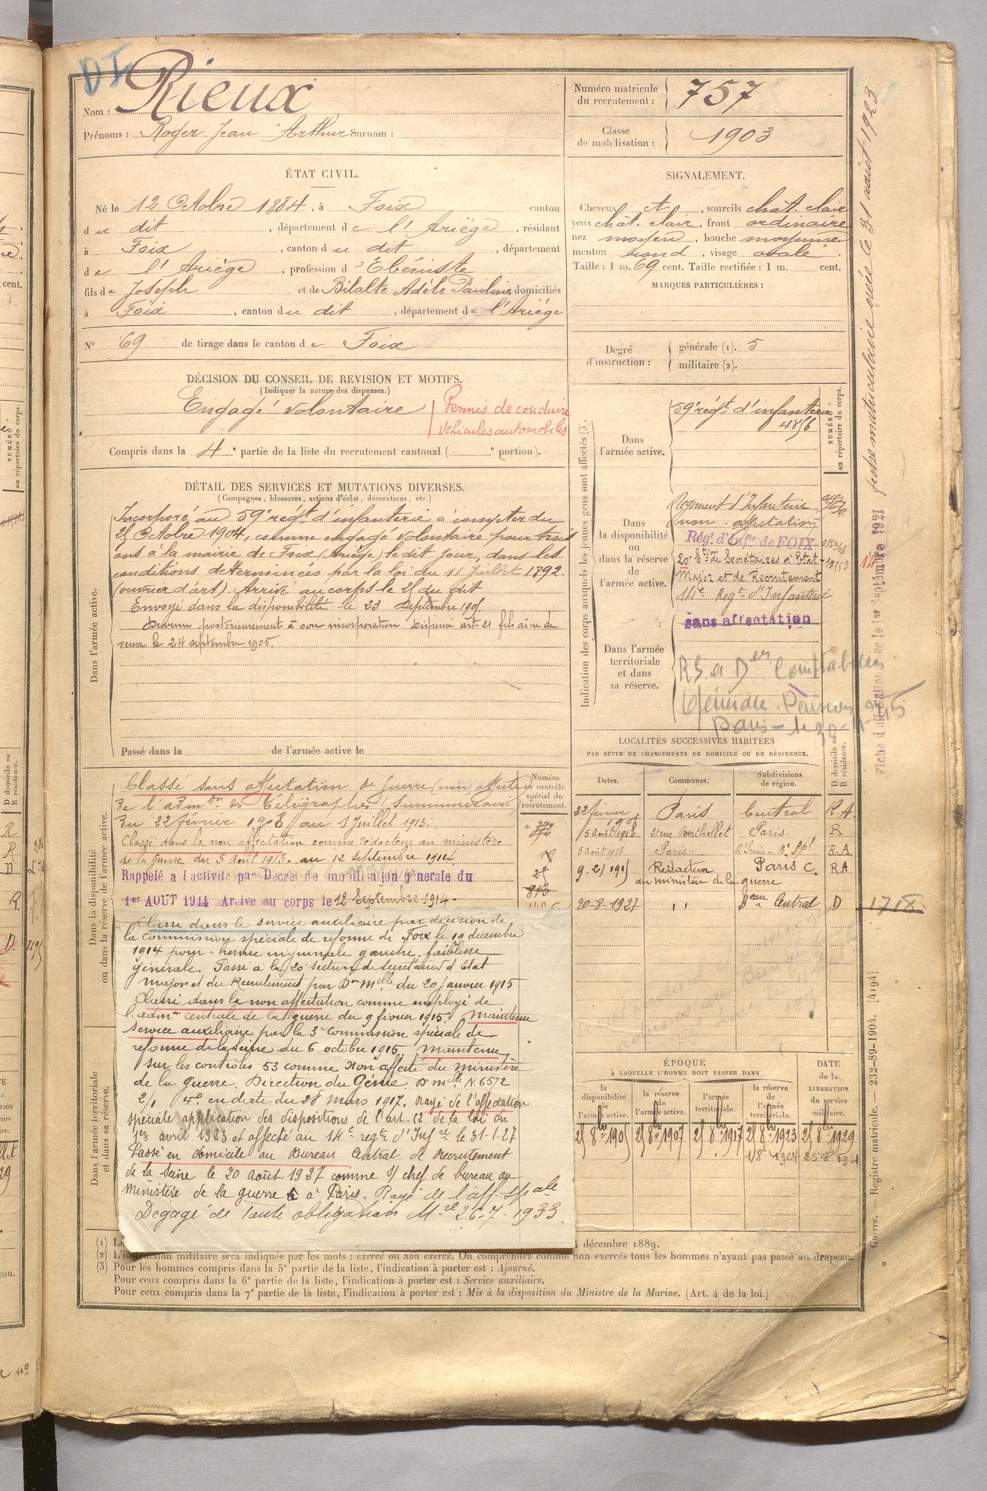 DI
Nom : Rieux
Prénoms : Roger Jean Arthur Surnom :
Numéro matricule du recrutement : 757
Classe de mobilisation : 1903
ÉTAT CIVIL.
Né le 12 Octobre 1884, à Foix canton
du dit, département de l'Ariège, résidant
à Foix, canton du dit, département
de l'Ariège, profession d'Ebéniste
fils de Joseph et de Bilalte Adèle Pauline, domiciliés
à Foix, canton du dit, département de l'Ariège
N° 69 de tirage dans le canton de Foix
SIGNALEMENT.
Cheveux ct, sourcils chât. clair
yeux chât. clair, front ordinaire
nez moyen, bouche moyenne
menton rond, visage ovale
Taille : 1 m. 69 cent. Taille rectifiée : 1 m. cent.
MARQUES PARTICULIÈRES :
Degré d'instruction : générale (1). 5
militaire (2).
DÉCISION DU CONSEIL DE REVISION ET MOTIFS.
(Indiquer la nature des dispenses.)
Engagé volontaire
Permis de conduire
véhicules automobiles
Compris dans la 4e partie de la liste du recrutement cantonal ( e portion).
DÉTAIL DES SERVICES ET MUTATIONS DIVERSES.
(Campagnes, blessures, actions d'éclat, décorations, etc.)
Dans l'armée active.
Incorporé au 59e régt d'infanterie à compter du
21 Octobre 1904, comme engagé volontaire pour trois
ans à la mairie de Foix (Ariège) le dit jour, dans les
conditions déterminées par la loi du 11 Juillet 1892.
(ouvrier d'art). Arrivé au corps le 21 du dit
Envoyé dans la disponibilité le 23 Septembre 1905.
Devenu postérieurement à son incorporation Dispensé art. 21 fils aîné de
veuve le 24 septembre 1905.
Passé dans la de l'armée active le
Indication des corps auxquels les jeunes gens sont affectés (3).
NUMÉRO au répertoire du corps.
Dans l'armée active.
59e régt d'infanterie
4856
Dans la disponibilité ou dans la réserve de l'armée active.
Régiment d'Infanterie
non-affectation
Rég. d'Inf. de FOIX
20e Son de Secrétaires d'Etat-
Major et de Recrutement
14e Régt d'Infanterie
sans affectation
Dans l'armée territoriale et dans sa réserve.
LOCALITÉS SUCCESSIVES HABITÉES
PAR SUITE DE CHANGEMENTS DE DOMICILE OU DE RÉSIDENCE.
Dates. Communes. Subdivisions de région. D domicile ou R résidence.
22 février 1908 Paris Central R.A
5 août 1912 31 rue Berthollet Paris. R
5 août 1913 Paris. R.A
9-2-1915 Rédaction au ministère de la guerre Paris C. R A
20-8-1927 " Seine Central D 1718
Dans la disponibilité ou dans la réserve de l'armée active.
Numéro au contrôle spécial du recrutement.
Classé sans affectation de guerre (non affecté)
de l'admon des Télégraphes,
Du 22 février 1908 au 1 Juillet 1913.
Classé dans la non affectation comme rédacteur au ministère
de la guerre du 5 août 1913. au 12 septembre 1914.
Rappelé à l'activité par Décret de mobilisation générale du
1er AOUT 1914 Arrivé au corps le 12 Septembre 1914.
Classé dans le service auxiliaire par décision de
la Commission spéciale de réforme de Foix le 19 décembre
1914 pour : hernie inguinale gauche, faiblesse
générale. Passé à la 20e section de secrétaires d'Etat
major et du Recrutement par Don melle du 20 janvier 1915
Classé dans la non affectation comme employé de
l'admon centrale de la guerre du 9 février 1915. Maintenu
service auxiliaire par la 3e Commission spéciale de
réforme de la Seine du 6 octobre 1915. Maintenu
sur les contrôles 53 comme Non affecté du ministère
de la guerre. Direction du Génie. D. melle N. 6572
2/1 en date du 28 Mars 1917. Rayé de l'affectation
spéciale application des dispositions de l'art. 52 de la loi du
1er avril 1923 et affecté au 14e régt d'Infrie le 31-1-27
Passé en domicile au Bureau Central de Recrutement
de la Seine le 20 août 1927 comme s/ chef de bureau au
ministère de la guerre à Paris. Rayé de l'aff. spale
Dégagé de toute obligation Mre 26-7-1933
Dans l'armée territoriale et dans sa réserve.
ÉPOQUE
À LAQUELLE L'HOMME DOIT PASSER DANS
la disponibilité de l'armée active. la réserve de l'armée active. l'armée territoriale. la réserve de l'armée territoriale. DATE de la LIBÉRATION du service militaire.
21 8bre 1905 21 8bre 1907 21 8bre 1917 21 8bre 1923 21 8bre 1929
décembre 1889.
(2) L'instruction militaire sera indiquée par les mots : exercé ou non exercé. On comprendra comme non exercés tous les hommes n'ayant pas passé au drapeau.
(3) Pour les hommes compris dans la 5e partie de la liste, l'indication à porter est : Ajourné.
Pour ceux compris dans la 6e partie de la liste, l'indication à porter est : Service auxiliaire.
Pour ceux compris dans la 7e partie de la liste, l'indication à porter est : Mis à la disposition du Ministre de la Marine. (Art. 4 de la loi.)
fiche matriculaire créée le 31 août 1923
Fiche d'affectation créée le 1er Septembre 1921
Guerre. — Registre matricule. — 232-89-1904. [4194]